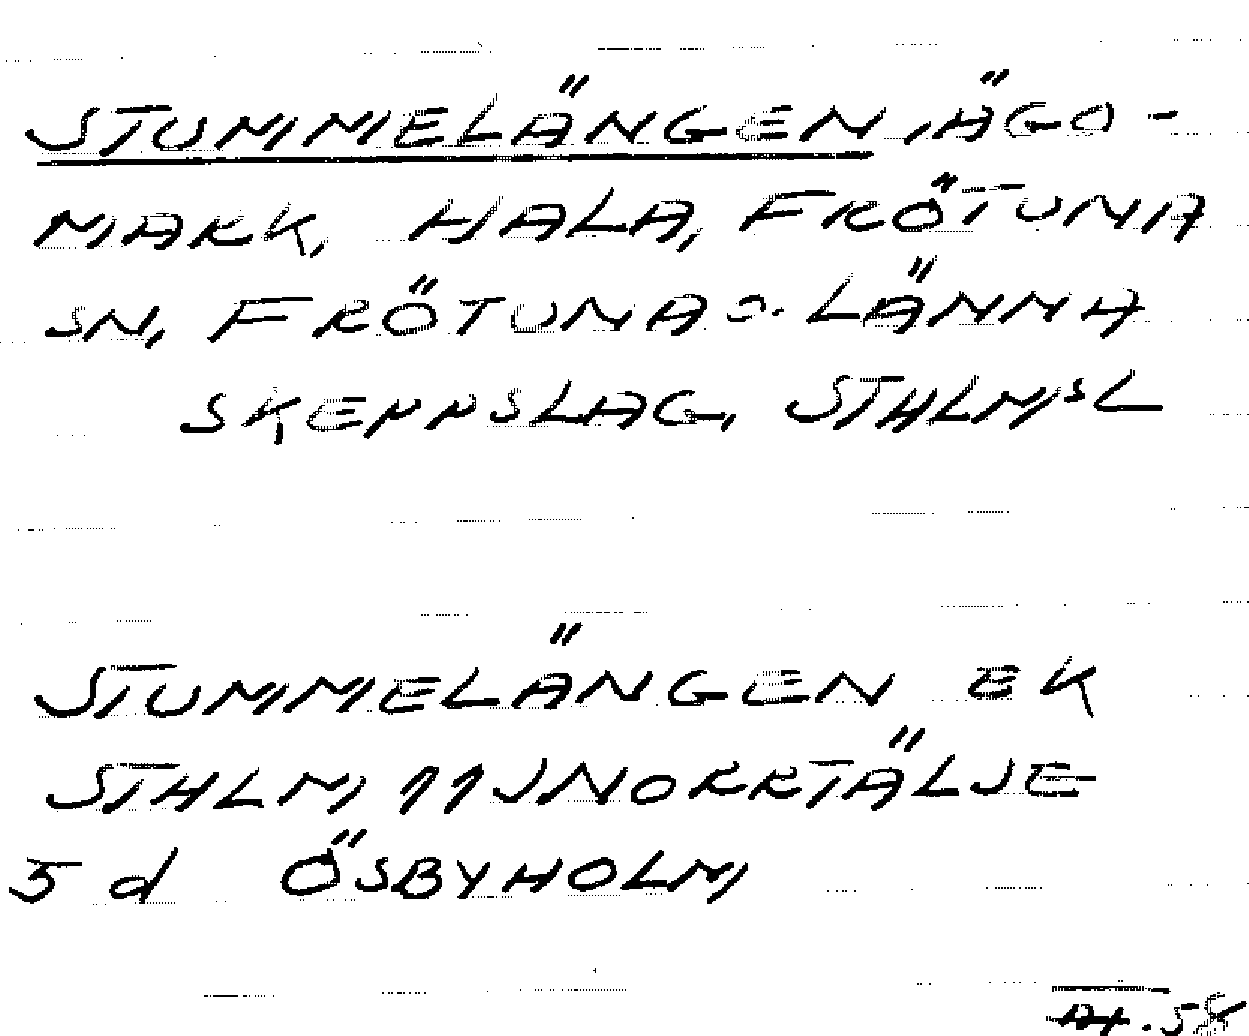 STUMMELÄNGEN, ÄGO-
MARK, HALA, FRÖTUNA
SN, FRÖTUNA O. LÄNNA
SKEPPSLAG, STHLMSL
STUMMELÄNGEN EK
STHLM 11J NORRTÄLJE
5 d ÖSBYHOLM